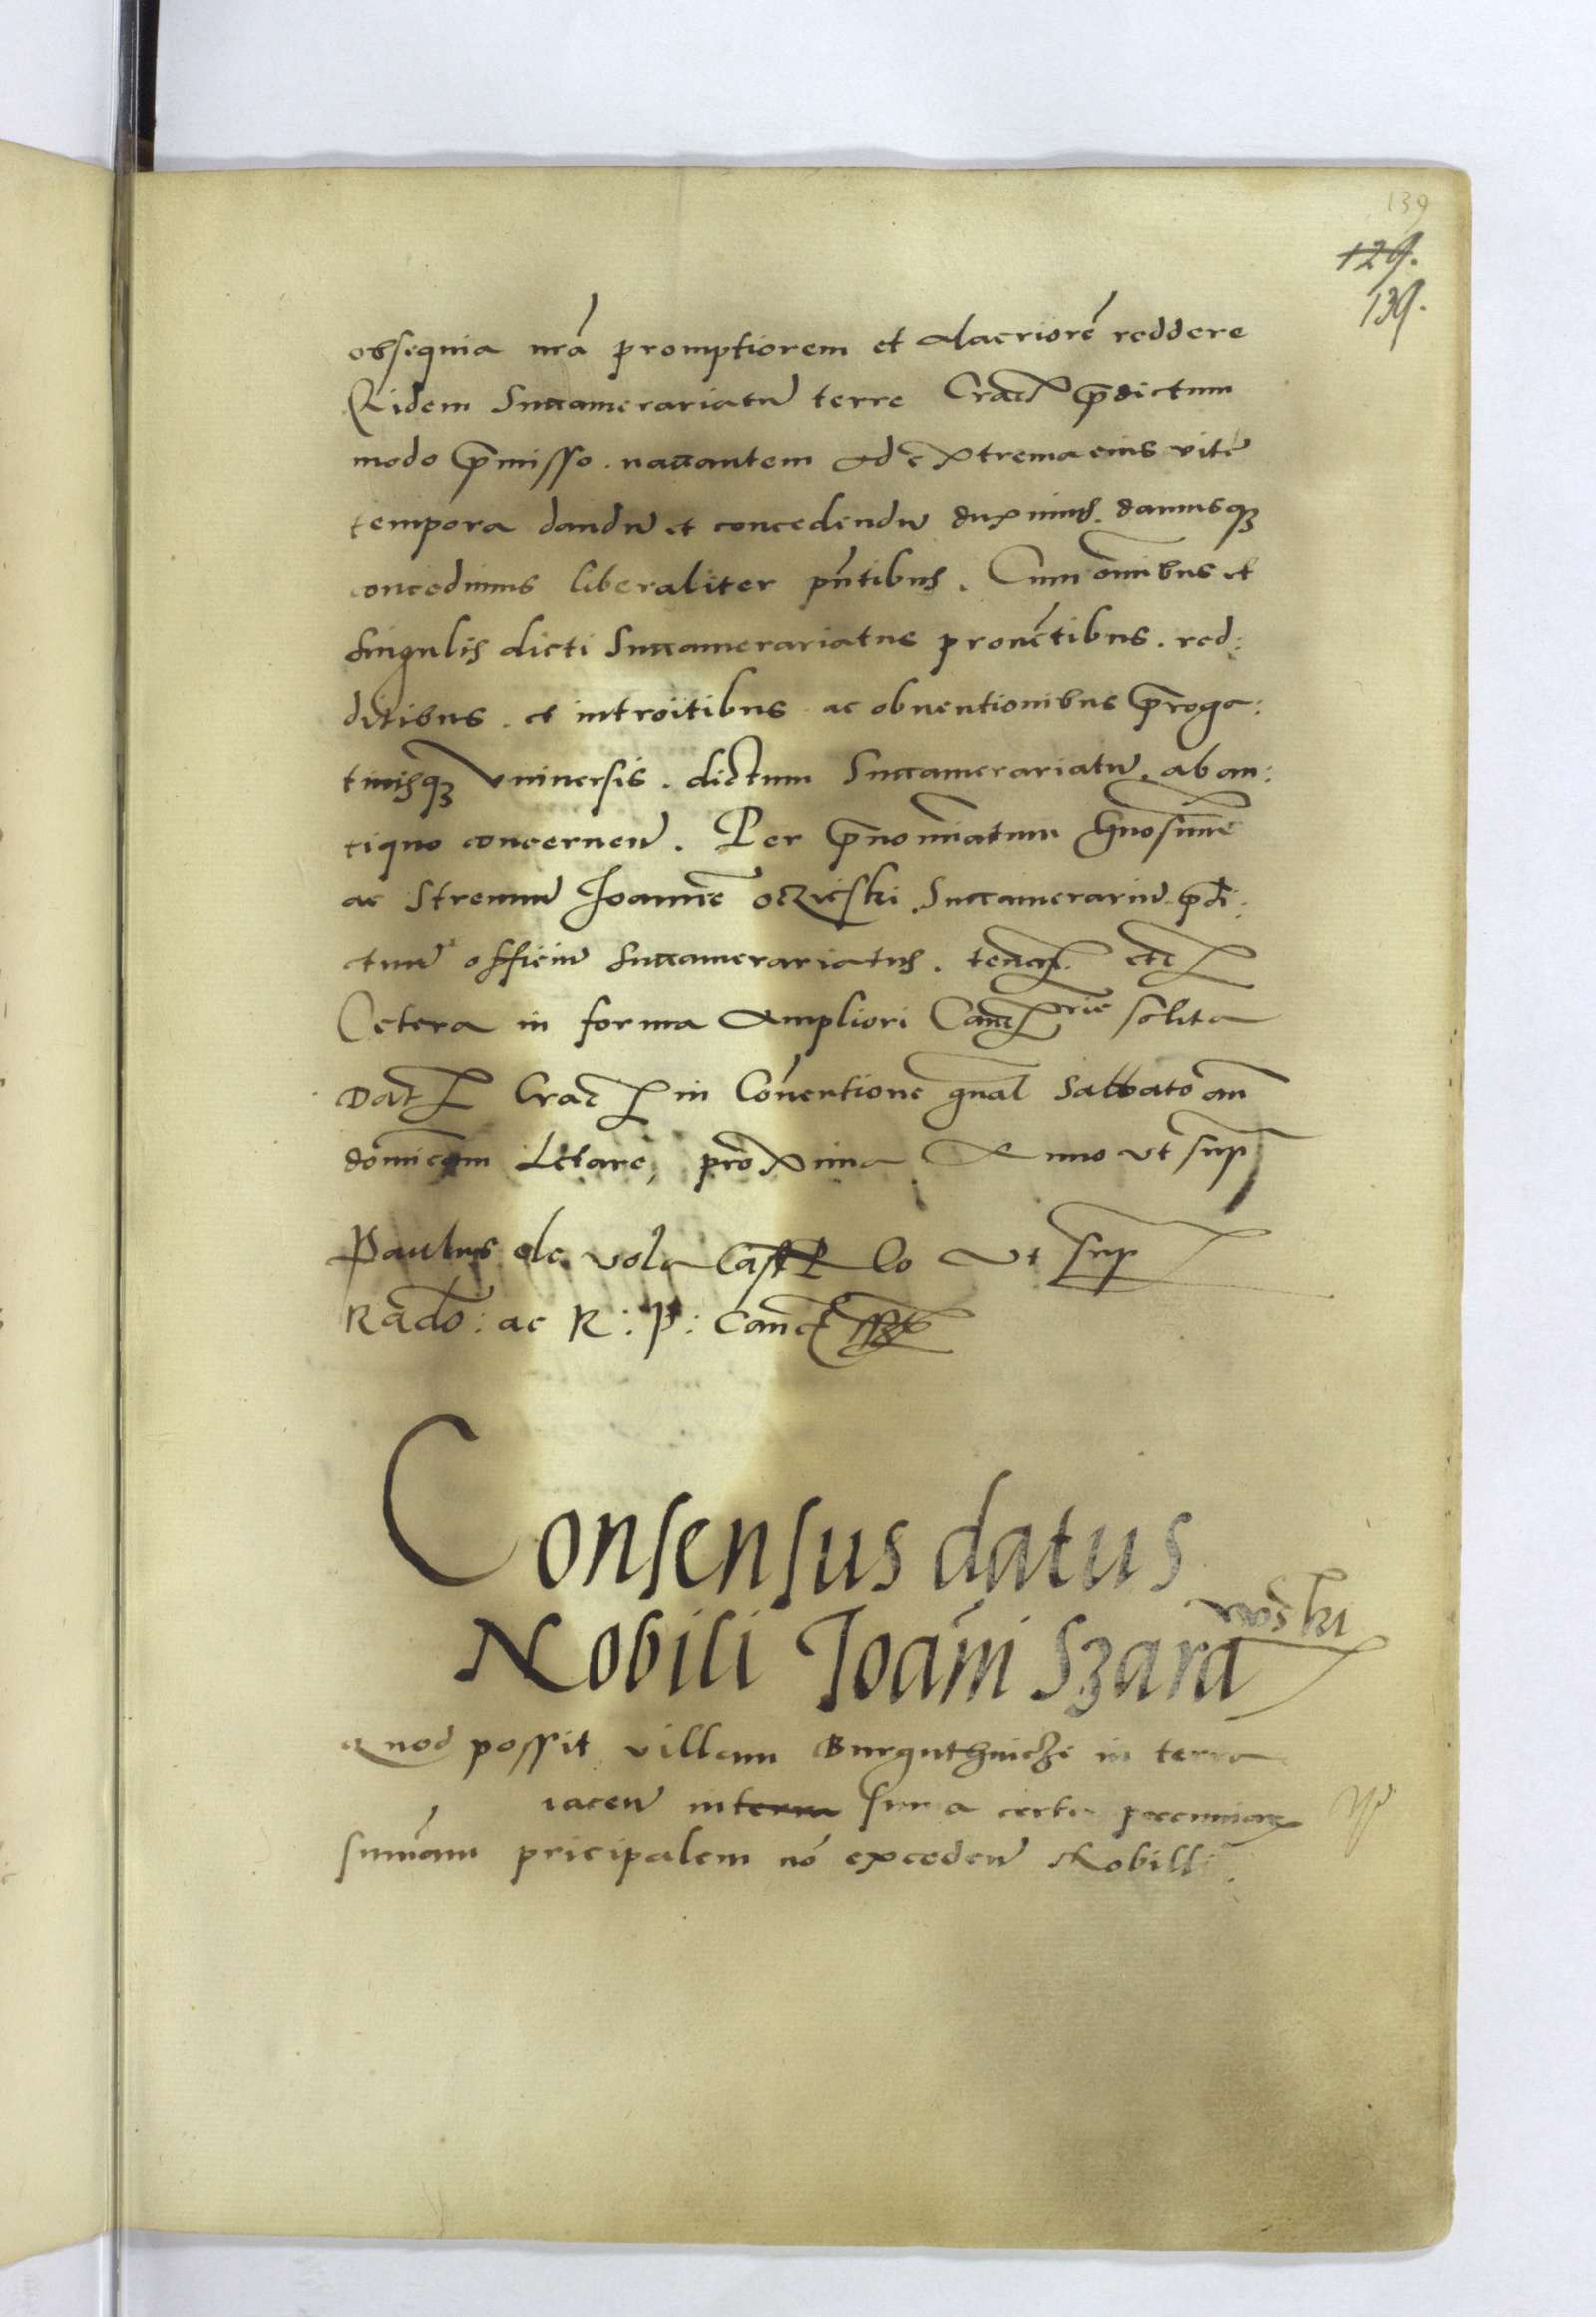 139
129.
139.
obsequia nrã promptiorem et alacriorẽ reddere
Eidem Succamerariatũ terre Crac p̃dictum
modo p̃misso . vacantem ad extrema eius vite
tempora dandũ et concedendũ duximus . damusq3
concedimus liberaliter pñtibus . Cum om̃ibus et
singulis dicti Succamerariatus prouẽtibus . red:
ditibus . et introitibus ac obuentionibus p̃roga:
tiuisq3 vniuersis . dictum Succamerariatũ . ab an:
tiquo concerneñ . Per p̃nomiatum Gñosum̃
ac Strenuũ Joannẽ oczieski Succamerariũ . p̃di:
ctum officiũ succamerariatus . tenen̄ etc
Cetera in forma ampliori Canc rie solita
Dat Crac in Cõuentione gñal Sabbato añ
domĩcam Letare, proxima Anno vt sup
Paulus de vola Cast lo vt sup
Rado: ac R: P: Canc sst
Consensus datus
Nobili Joãni Szara
woski
Quod possit villam Burguthniczi in terra
iaceñ in terra sum a certa pecuniar
sum̃am pricipalem nõ excedeñ Nobili